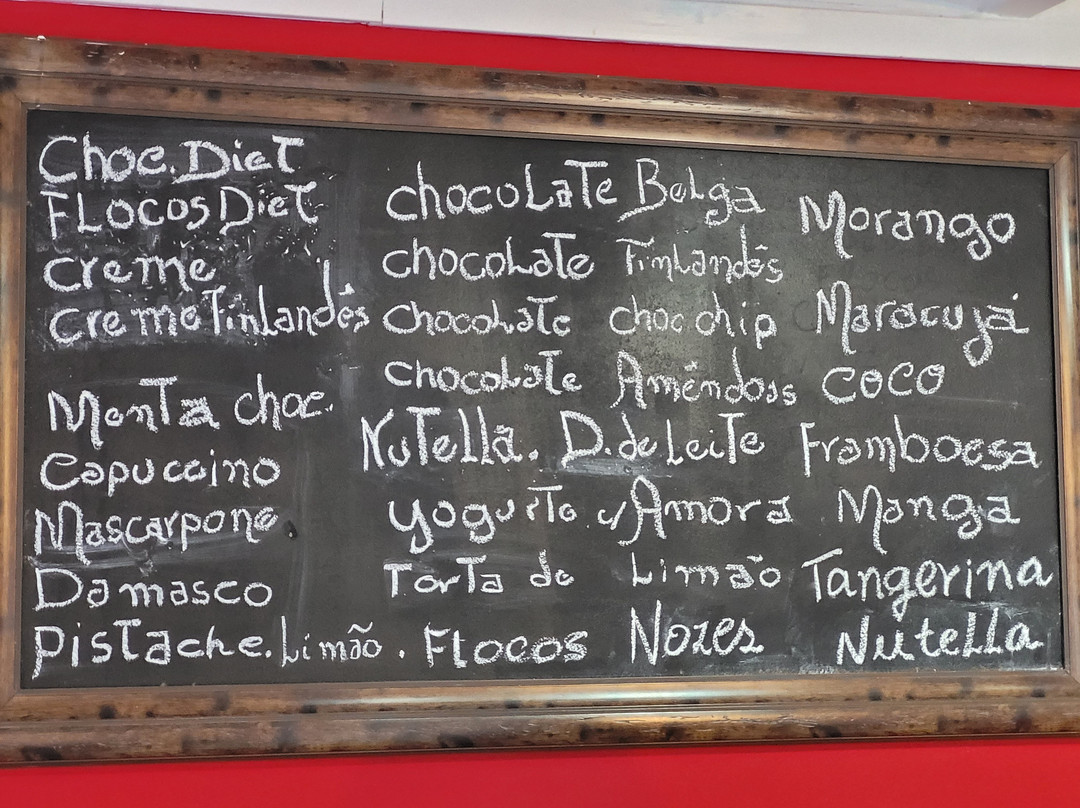 Choc. Diet
Flocos Diet
Creme
Creme Finlandês
Menta choc.
Capuccino
Mascarpone
Damasco
Pistache. Limão. Flocos Nozes
chocolate Belga
chocolate Finlandês
chocolate choc chip
chocolate Amêndoas
Nutella. D. de Leite
yogurte c/ Amora
Torta de Limão
Morango
Maracuyá
coco
Framboesa
Manga
Tangerina
Nutella